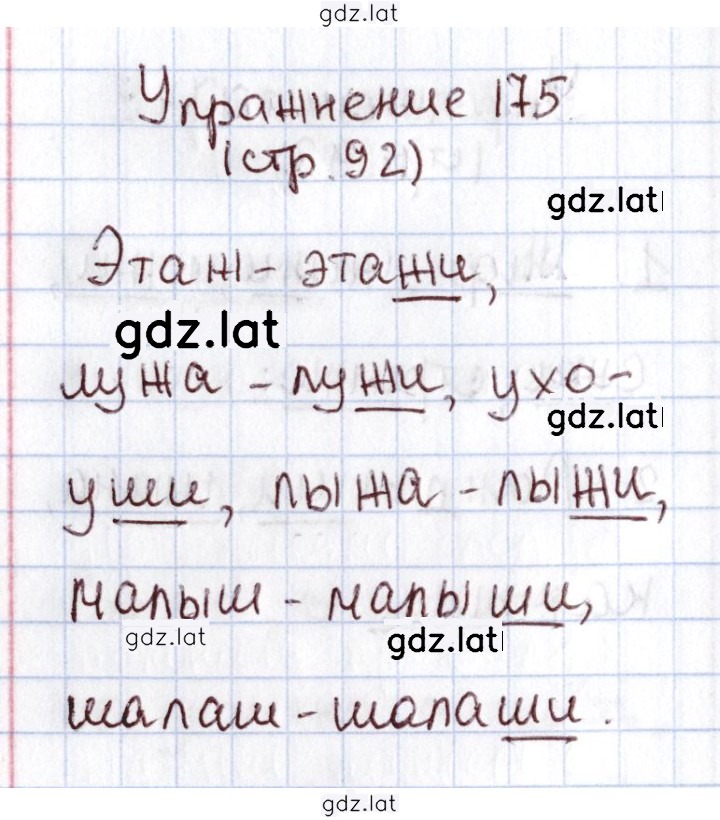 gdz.lat
Упражнение 175
(стр. 92)
gdz.lat
Этаж - этажи,
gdz.lat
лужа - лужи, ухо-
gdz.lat
уши, лыжа - лыжи,
малыш - малыши,
gdz.lat gdz.lat
шалаш - шалаши.
gdz.lat